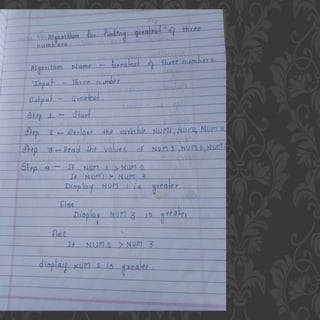 Algorithm for finding greatest of three
numbers
Algorithm Name - Greatest of three numbers
Input - Three number
Output - Greatest
Step 1 - Start
Step 2 - Declare the variable NUM1, NUM2, NUM 3
Step 3 - Read the values of NUM 1, NUM 2, NUM 3
Step 4 - If NUM 1 > NUM 2
If NUM 1 > NUM 3
Display NUM 1 is greater
Else
Display NUM 3 is greater
Else
If NUM 2 > NUM 3
display NUM 2 is greater